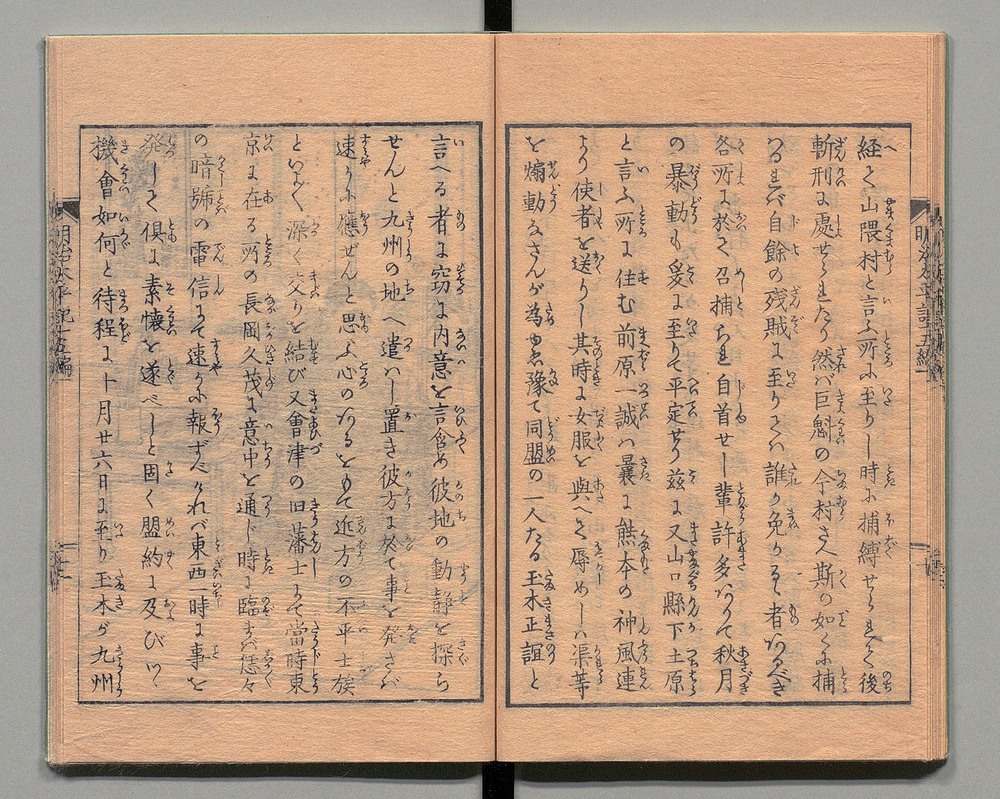 経て山隈村と言ふ所に至りし時に捕縛せられて後
斬刑に処せられたり然バ巨魁の今村さへ斯の如くに捕
つるれバ自余の残賊に至りてハ誰か免かるゝ者あるべき
各所に於て召捕られ自首せし輩許多ありて秋月
の暴動も爰に至りて平定せり茲に又山口縣下土原
と言ふ所に住む前原一誠ハ曩に熊本の神風連
より使者を送りし其時に女服を與へて辱めしハ渠等
を煽動なさんが為ゆゑ豫て同盟の一人たる玉木正誼と
言へる者に窃に内意を言含め彼地の動静を探ら
せんと九州の地へ遣ハし置き彼方に於て事を発さバ
速かに應ぜんと思ふ心のあるをもて近方の不平士族
といよ〱深く交りを結び又會津の旧藩士にて當時東
京に在る所の長岡久茂に意中を通じ時に臨まバ恁々
の暗號の電信にて速かに報ずべけれバ東西一時に事を
発して倶に素懐を遂べしと固く盟約に及びつゝ
機會如何と待程に十月廿六日に至り玉木が九州